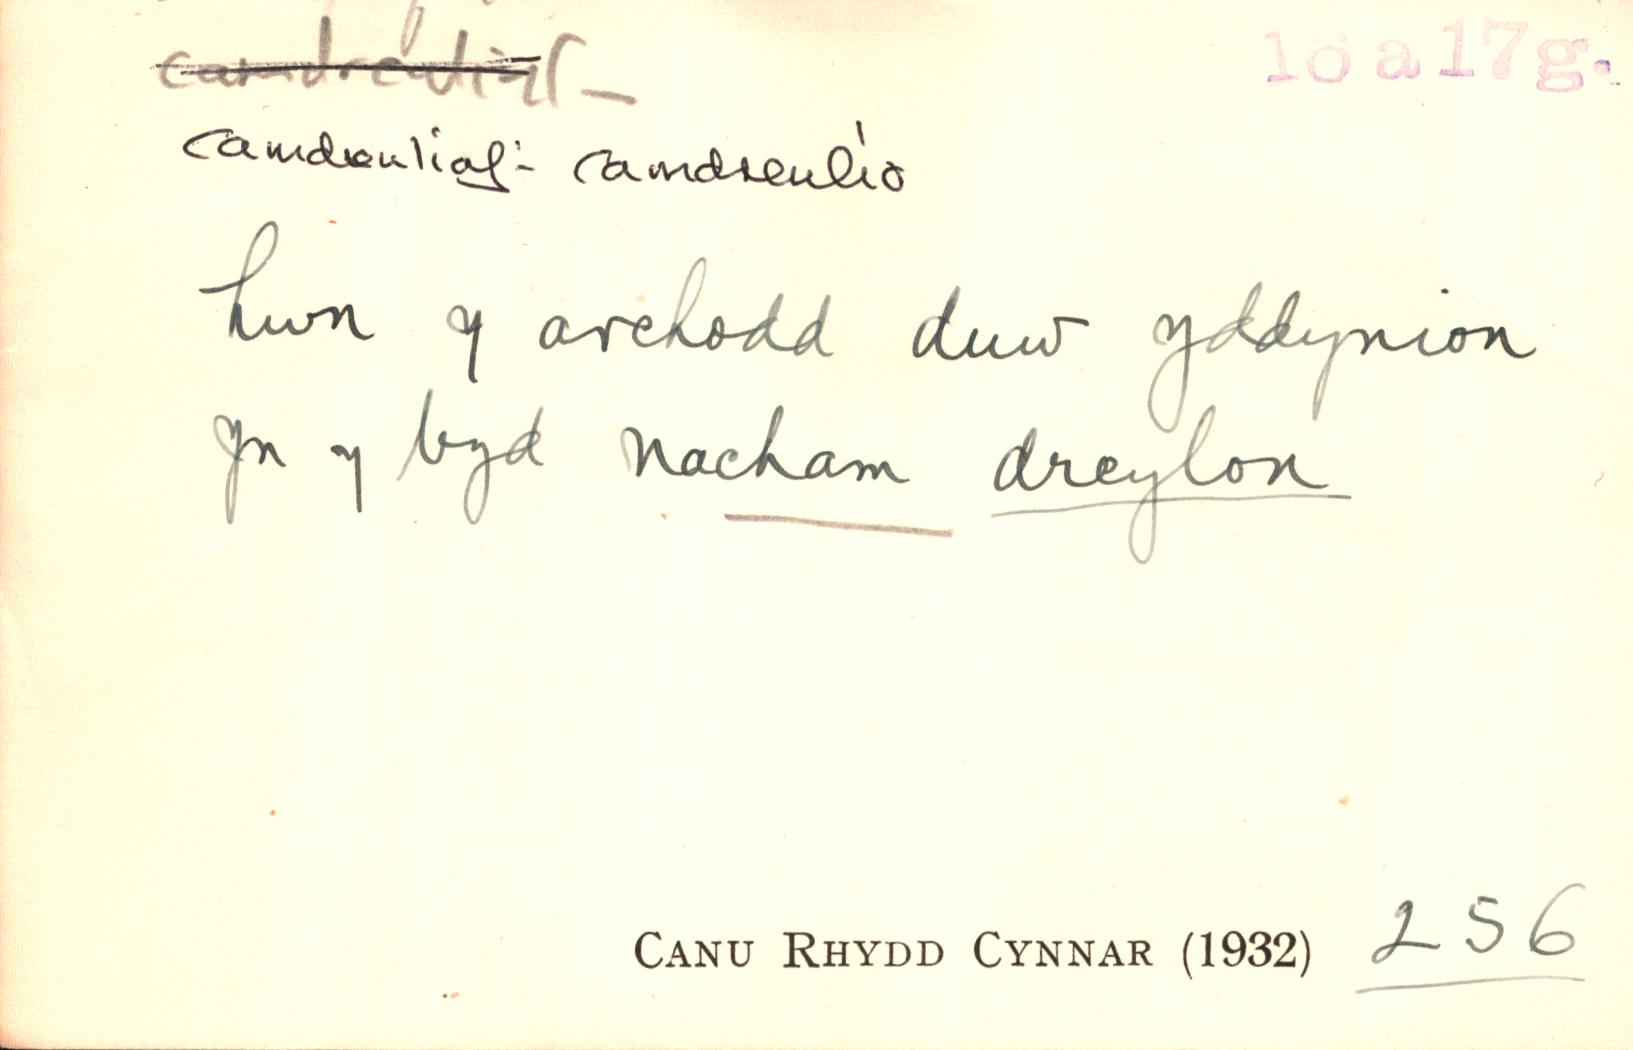 16 a 17g.
camdreuliaf: camdreulio
hwn y archodd duw yddynion
yn y byd nacham dreylon
CANU RHYDD CYNNAR (1932) 256